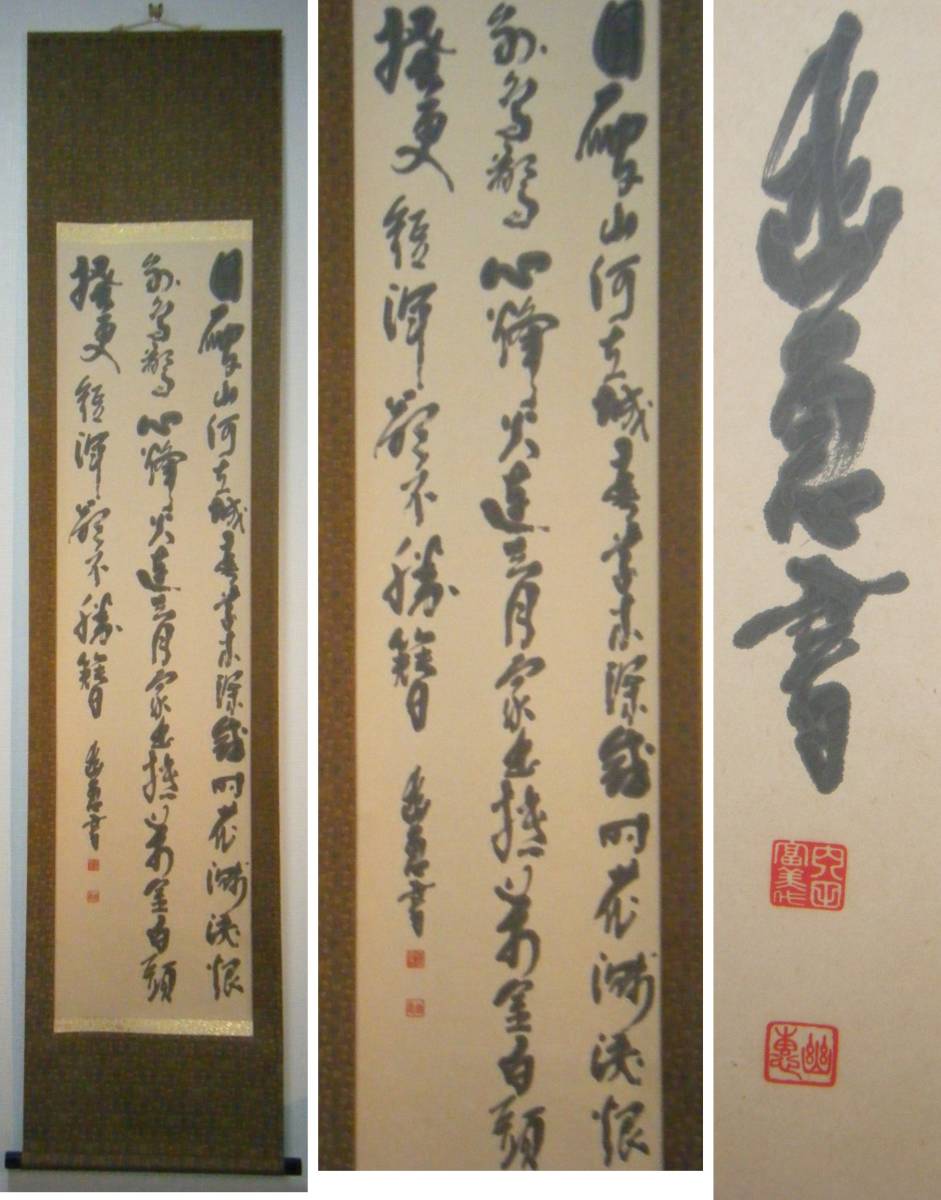 國破山河在城春草木深感時花濺淚恨
別鳥驚心烽火連三月家書抵萬金白頭
搔更短渾欲不勝簪
幽惠書
國破山河在城春草木深感時花濺淚恨
別鳥驚心烽火連三月家書抵萬金白頭
搔更短渾欲不勝簪
幽惠書
幽惠書
富美代
幽惠